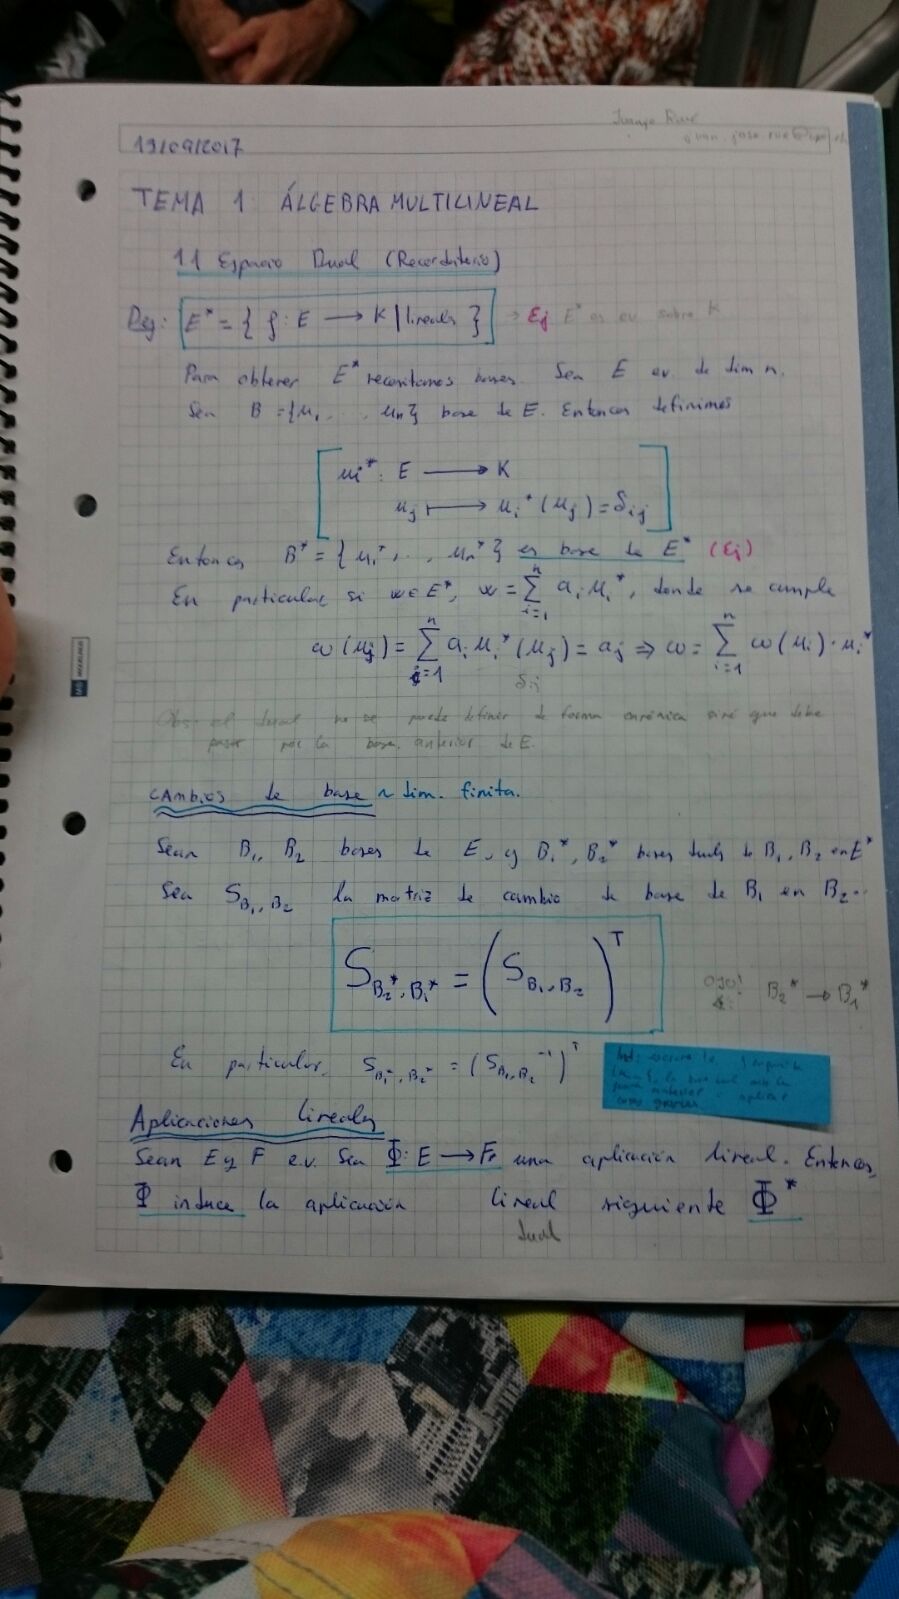 19/09/2017
TEMA 1 ÁLGEBRA MULTILINEAL
1.1 Espacio Dual (Recordatorio)
Def: E* = { f : E → K | lineales } → Ej E* es ev sobre K
Para obtener E* necesitamos bases. Sea E ev. de dim n.
Sea B = {u₁, ..., uₙ} base de E. Entonces definimos
uᵢ* : E → K
uⱼ ↦ uᵢ*(uⱼ) = δᵢⱼ
Entonces B* = {u₁*, ..., uₙ*} es base de E* (Ej)
En particular si w ∈ E*, w = Σⁿᵢ₌₁ aᵢ uᵢ*, donde se cumple
ω(uⱼ) = Σⁿᵢ₌₁ aᵢ uᵢ*(uⱼ) = aⱼ ⇒ ω = Σⁿᵢ₌₁ ω(uᵢ)·uᵢ*
δᵢⱼ
Obs: el dual no se puede definir de forma canónica sinó que debe
pasar por la base anterior de E.
Cambios de base ~ dim. finita.
Sean B₁, B₂ bases de E, y B₁*, B₂* bases duals de B₁, B₂ en E*
Sea S_B₁,B₂ la matriz de cambio de base de B₁ en B₂.
S_B₂*,B₁* = (S_B₁,B₂)ᵀ
OJO! B₂* → B₁*
En particular, S_B₁*,B₂* = (S_B₁,B₂⁻¹)ᵀ
Aplicaciones lineales
Sean E y F e.v. Sea Φ: E → F, una aplicación lineal. Entonces,
Φ induce la aplicación lineal siguiente Φ*
dual